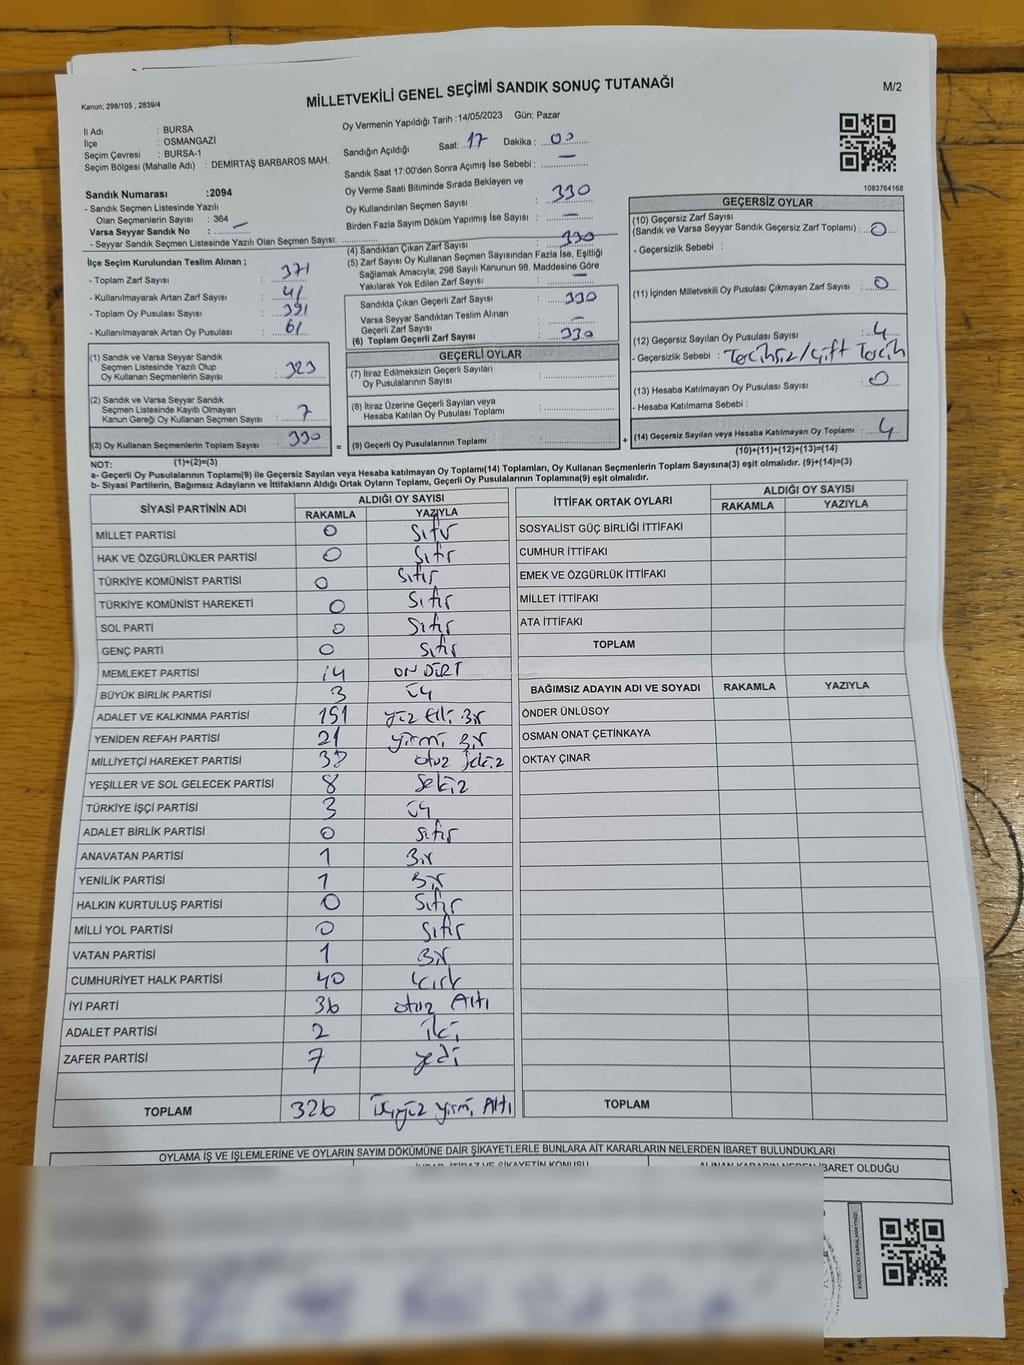 Kanun; 298/105 , 2839/4
MİLLETVEKİLİ GENEL SEÇİMİ SANDIK SONUÇ TUTANAĞI
M/2
İl Adı : BURSA
İlçe : OSMANGAZİ
Seçim Çevresi : BURSA-1
Seçim Bölgesi (Mahalle Adı) : DEMİRTAŞ BARBAROS MAH.
Oy Vermenin Yapıldığı Tarih :14/05/2023 Gün: Pazar
Sandığın Açıldığı Saat: 17 Dakika : 00
Sandık Saat 17:00'den Sonra Açımış İse Sebebi : —
Oy Verme Saati Bitiminde Sırada Bekleyen ve
Oy Kullandırılan Seçmen Sayısı : 330
Birden Fazla Sayım Döküm Yapılmış İse Sayısı : —
1083764168
Sandık Numarası :2094
- Sandık Seçmen Listesinde Yazılı
Olan Seçmenlerin Sayısı : 364
Varsa Seyyar Sandık No : —
- Seyyar Sandık Seçmen Listesinde Yazılı Olan Seçmen Sayısı:
İlçe Seçim Kurulundan Teslim Alınan ;
- Toplam Zarf Sayısı : 371
- Kullanılmayarak Artan Zarf Sayısı : 41
- Toplam Oy Pusulası Sayısı : 391
- Kullanılmayarak Artan Oy Pusulası : 61
(1) Sandık ve Varsa Seyyar Sandık
Seçmen Listesinde Yazılı Olup
Oy Kullanan Seçmenlerin Sayısı : 323
(2) Sandık ve Varsa Seyyar Sandık
Seçmen Listesinde Kayıtlı Olmayan
Kanun Gereği Oy Kullanan Seçmen Sayısı : 7
(3) Oy Kullanan Seçmenlerin Toplam Sayısı : 330
(1)+(2)=(3)
(4) Sandıktan Çıkan Zarf Sayısı : 330
(5) Zarf Sayısı Oy Kullanan Seçmen Sayısından Fazla İse, Eşitliği
Sağlamak Amacıyla, 298 Sayılı Kanunun 98. Maddesine Göre
Yakılarak Yok Edilen Zarf Sayısı :
Sandıkta Çıkan Geçerli Zarf Sayısı : 330
Varsa Seyyar Sandıktan Teslim Alınan
Geçerli Zarf Sayısı : —
(6) Toplam Geçerli Zarf Sayısı : 330
GEÇERLİ OYLAR
(7) İtiraz Edilmeksizin Geçerli Sayılan
Oy Pusulalarının Sayısı :
(8) İtiraz Üzerine Geçerli Sayılan veya
Hesaba Katılan Oy Pusulası Toplamı :
= (9) Geçerli Oy Pusulalarının Toplamı :
GEÇERSİZ OYLAR
(10) Geçersiz Zarf Sayısı
(Sandık ve Varsa Seyyar Sandık Geçersiz Zarf Toplamı) : 0
- Geçersizlik Sebebi :
(11) İçinden Milletvekili Oy Pusulası Çıkmayan Zarf Sayısı : 0
(12) Geçersiz Sayılan Oy Pusulası Sayısı : 4
- Geçersizlik Sebebi : Tercihsiz/Çift Tercih
(13) Hesaba Katılmayan Oy Pusulası Sayısı : 0
- Hesaba Katılmama Sebebi :
+ (14) Geçersiz Sayılan veya Hesaba Katılmayan Oy Toplamı : 4
(10)+(11)+(12)+(13)=(14)
NOT:
a- Geçerli Oy Pusulalarının Toplamı(9) ile Geçersiz Sayılan veya Hesaba katılmayan Oy Toplamı(14) Toplamları, Oy Kullanan Seçmenlerin Toplam Sayısına(3) eşit olmalıdır. (9)+(14)=(3)
b- Siyasi Partilerin, Bağımsız Adayların ve İttifakların Aldığı Ortak Oyların Toplamı, Geçerli Oy Pusulalarının Toplamına(9) eşit olmalıdır.
SİYASİ PARTİNİN ADI
ALDIĞI OY SAYISI
RAKAMLA YAZIYLA
MİLLET PARTİSİ 0 Sıfır
HAK VE ÖZGÜRLÜKLER PARTİSİ 0 Sıfır
TÜRKİYE KOMÜNİST PARTİSİ 0 Sıfır
TÜRKİYE KOMÜNİST HAREKETİ 0 Sıfır
SOL PARTİ 0 Sıfır
GENÇ PARTİ 0 Sıfır
MEMLEKET PARTİSİ 14 ON DÖRT
BÜYÜK BİRLİK PARTİSİ 3 üç
ADALET VE KALKINMA PARTİSİ 151 yüz Elli Bir
YENİDEN REFAH PARTİSİ 21 yirmi Bir
MİLLİYETÇİ HAREKET PARTİSİ 38 otuz sekiz
YEŞİLLER VE SOL GELECEK PARTİSİ 8 Sekiz
TÜRKİYE İŞÇİ PARTİSİ 3 üç
ADALET BİRLİK PARTİSİ 0 Sıfır
ANAVATAN PARTİSİ 1 Bir
YENİLİK PARTİSİ 1 Bir
HALKIN KURTULUŞ PARTİSİ 0 Sıfır
MİLLİ YOL PARTİSİ 0 Sıfır
VATAN PARTİSİ 1 Bir
CUMHURİYET HALK PARTİSİ 40 kırk
İYİ PARTİ 36 otuz Altı
ADALET PARTİSİ 2 iki
ZAFER PARTİSİ 7 yedi
TOPLAM 326 üçyüz yirmi Altı
İTTİFAK ORTAK OYLARI
ALDIĞI OY SAYISI
RAKAMLA YAZIYLA
SOSYALİST GÜÇ BİRLİĞİ İTTİFAKI
CUMHUR İTTİFAKI
EMEK VE ÖZGÜRLÜK İTTİFAKI
MİLLET İTTİFAKI
ATA İTTİFAKI
TOPLAM
BAĞIMSIZ ADAYIN ADI VE SOYADI RAKAMLA YAZIYLA
ÖNDER ÜNLÜSOY
OSMAN ONAT ÇETİNKAYA
OKTAY ÇINAR
TOPLAM
OYLAMA İŞ VE İŞLEMLERİNE VE OYLARIN SAYIM DÖKÜMÜNE DAİR ŞİKAYETLERLE BUNLARA AİT KARARLARIN NELERDEN İBARET BULUNDUKLARI
İHBAR, İTİRAZ VE ŞİKAYETİN KONUSU ALINAN KARARIN NEDEN İBARET OLDUĞU
KARE KODU KARALAMAYINIZ!